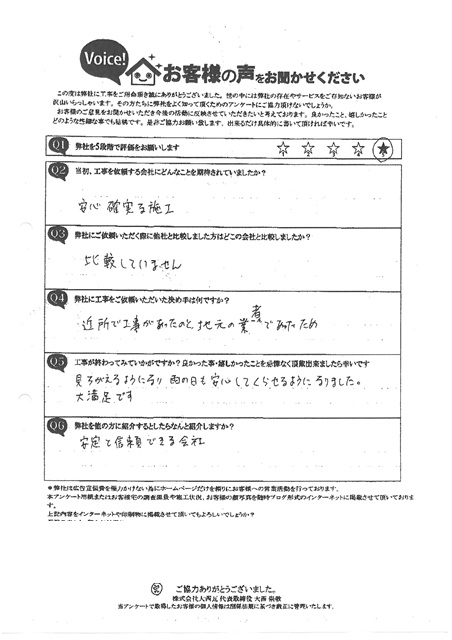 Voice!
お客様の声をお聞かせください
この度は弊社に工事をご用命頂き誠にありがとうございました。世の中には弊社の存在やサービスをご存知ないお客様が
沢山いらっしゃいます。その方たちに弊社をよく知って頂くためのアンケートにご協力頂けないでしょうか。
お客様のご意見をお聞かせいただき今後の活動に反映させていただきたいと考えております。良かったこと、嬉しかったこと
どのような些細な事でも結構です。是非ご協力お願い致します。出来るだけ具体的に書いて頂ければ幸いです。
Q1 弊社を5段階で評価をお願いします
1 2 3 4 5
Q2 当初、工事を依頼する会社にどんなことを期待されていましたか?
安心 確実な施工
Q3 弊社にご依頼いただく際に他社と比較しました方はどこの会社と比較しましたか?
比較していません
Q4 弊社に工事をご依頼いただいた決め手は何ですか?
近所で工事があったのと、地元の業者であったため
Q5 工事が終わってみていかがですか?良かった事・嬉しかったことを忌憚なく頂戴出来ましたら幸いです
見ちがえるようになり 雨の日も安心してくらせるようになりました。
大満足です
Q6 弊社を他の方に紹介するとしたらなんと紹介しますか?
安定と信頼できる会社
*弊社は広告宣伝費を極力かけない為にホームページだけを頼りにお客様への営業活動を行っております。
本アンケート用紙またはお客様宅の調査風景や施工状況、お客様の顔写真を随時ブログ形式のインターネットに掲載させて頂いておりま
す。
上記内容をインターネットや印刷物に掲載させて頂いてもよろしいでしょうか?
ご協力ありがとうございました。
株式会社大西瓦 代表取締役 大西 崇敬
当アンケートで取得したお客様の個人情報は関係法規に基づき厳正に管理いたします。